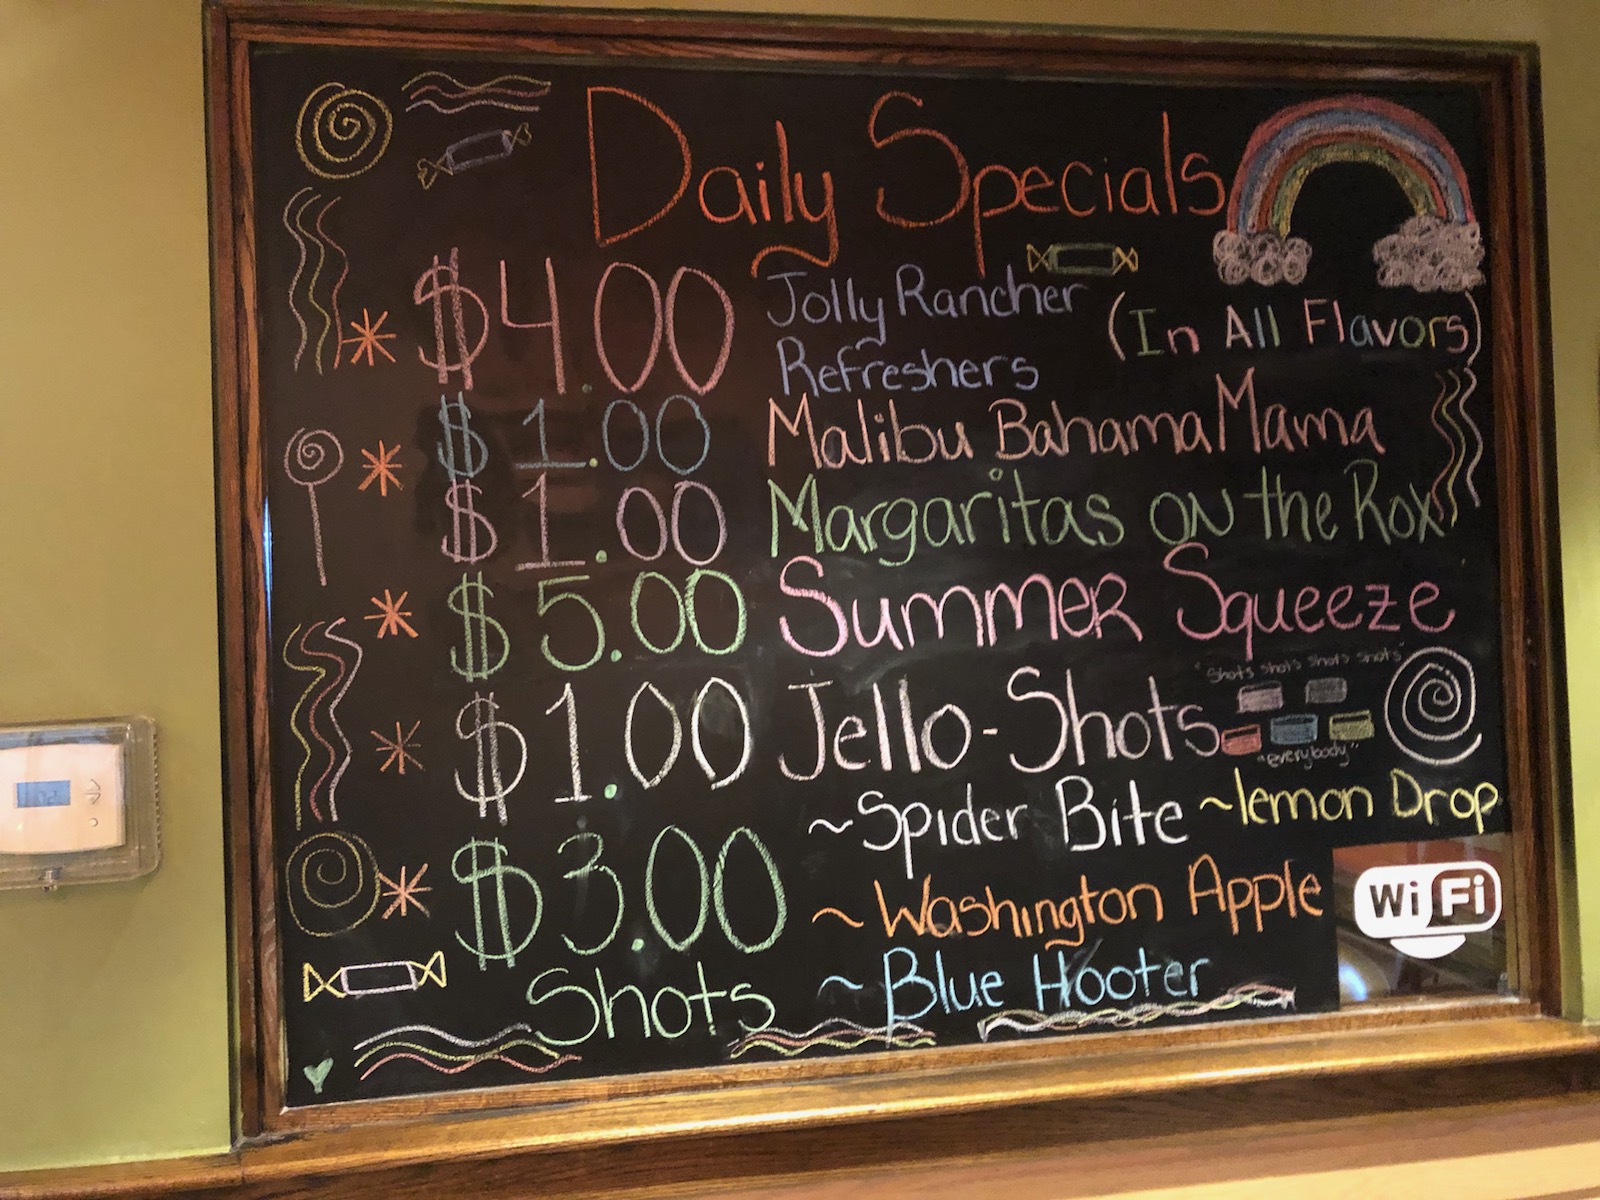 Daily Specials
$4.00 Jolly Rancher Refreshers (In All Flavors)
$1.00 Malibu Bahama Mama
$1.00 Margaritas on the Rox
$5.00 Summer Squeeze
"Shots shots shots shots"
$1.00 Jello-Shots
"everybody"
~Spider Bite ~lemon Drop
$3.00 ~Washington Apple
Shots ~Blue Hooter
WiFi